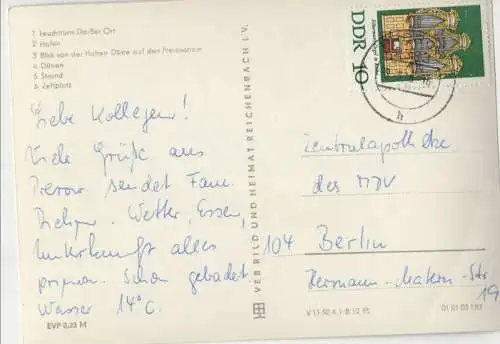 1 Leuchtturm Darßer Ort
2 Hafen
3 Blick von der Hohen Düne auf den Prerowstrom
4 Dünen
5 Strand
6 Zeltplatz
Liebe Kollegen!
Viele Grüße aus
Prerow sendet Fam.
Wetter, Essen,
Unterkunft alles
prima. Schon gebadet.
Wasser 14°C.
EVP 0,25 M
VEB BILD UND HEIMAT REICHENBACH I. V.
DDR 10
h
Zentralapotheke
des MDV
104 Berlin
Hermann-Matern-Str
19
01 01 03 183